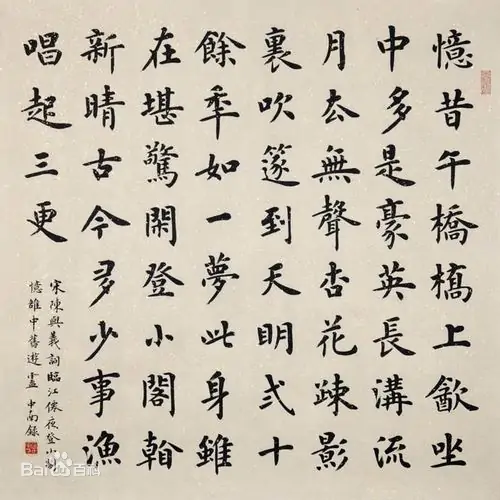 憶昔午橋橋上㱃坐
中多是豪英長溝流
月厺無聲杏花疎影
裏吹篴到天明弍十
餘秊如一夢此身雖
在堪驚閑登小閣看
新晴古今多少事漁
唱起三更
宋陳與義詞臨江僊夜登小閣
憶雒中舊遊 中南錄
Bai百科